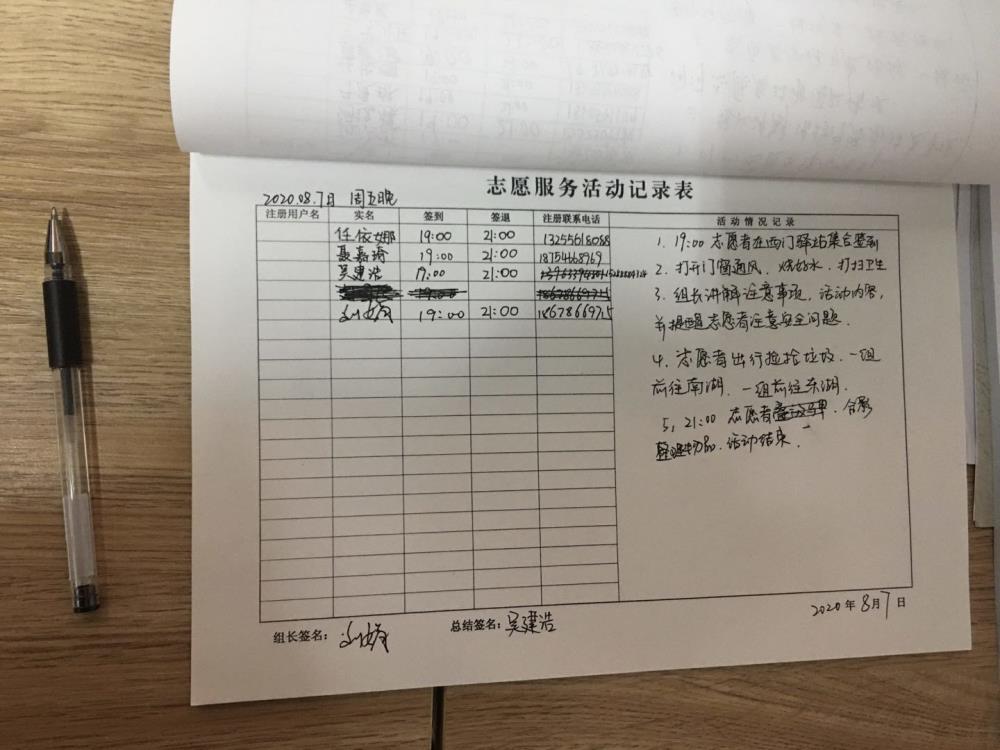 志愿服务活动记录表
2020.08.7日 周五晚
注册用户名 实名 签到 签退 注册联系电话 活动情况记录
任依娜 19:00 21:00 13255618088
聂嘉琦 19:00 21:00 18754668969
吴建浩 17:00 21:00
19:00 18678669715
19:00 21:00 18678669715
1. 19:00 志愿者在西门驿站集合签到
2. 打开门窗通风、烧好水、打扫卫生
3. 组长讲解注意事项、活动内容,
并提醒志愿者注意安全问题.
4. 志愿者出行捡拾垃圾.一组
前往南湖、一组前往东湖.
5, 21:00 志愿者 、合影
整理物品、活动结束.
2020年8月7日
组长签名:
总结签名: 吴建浩